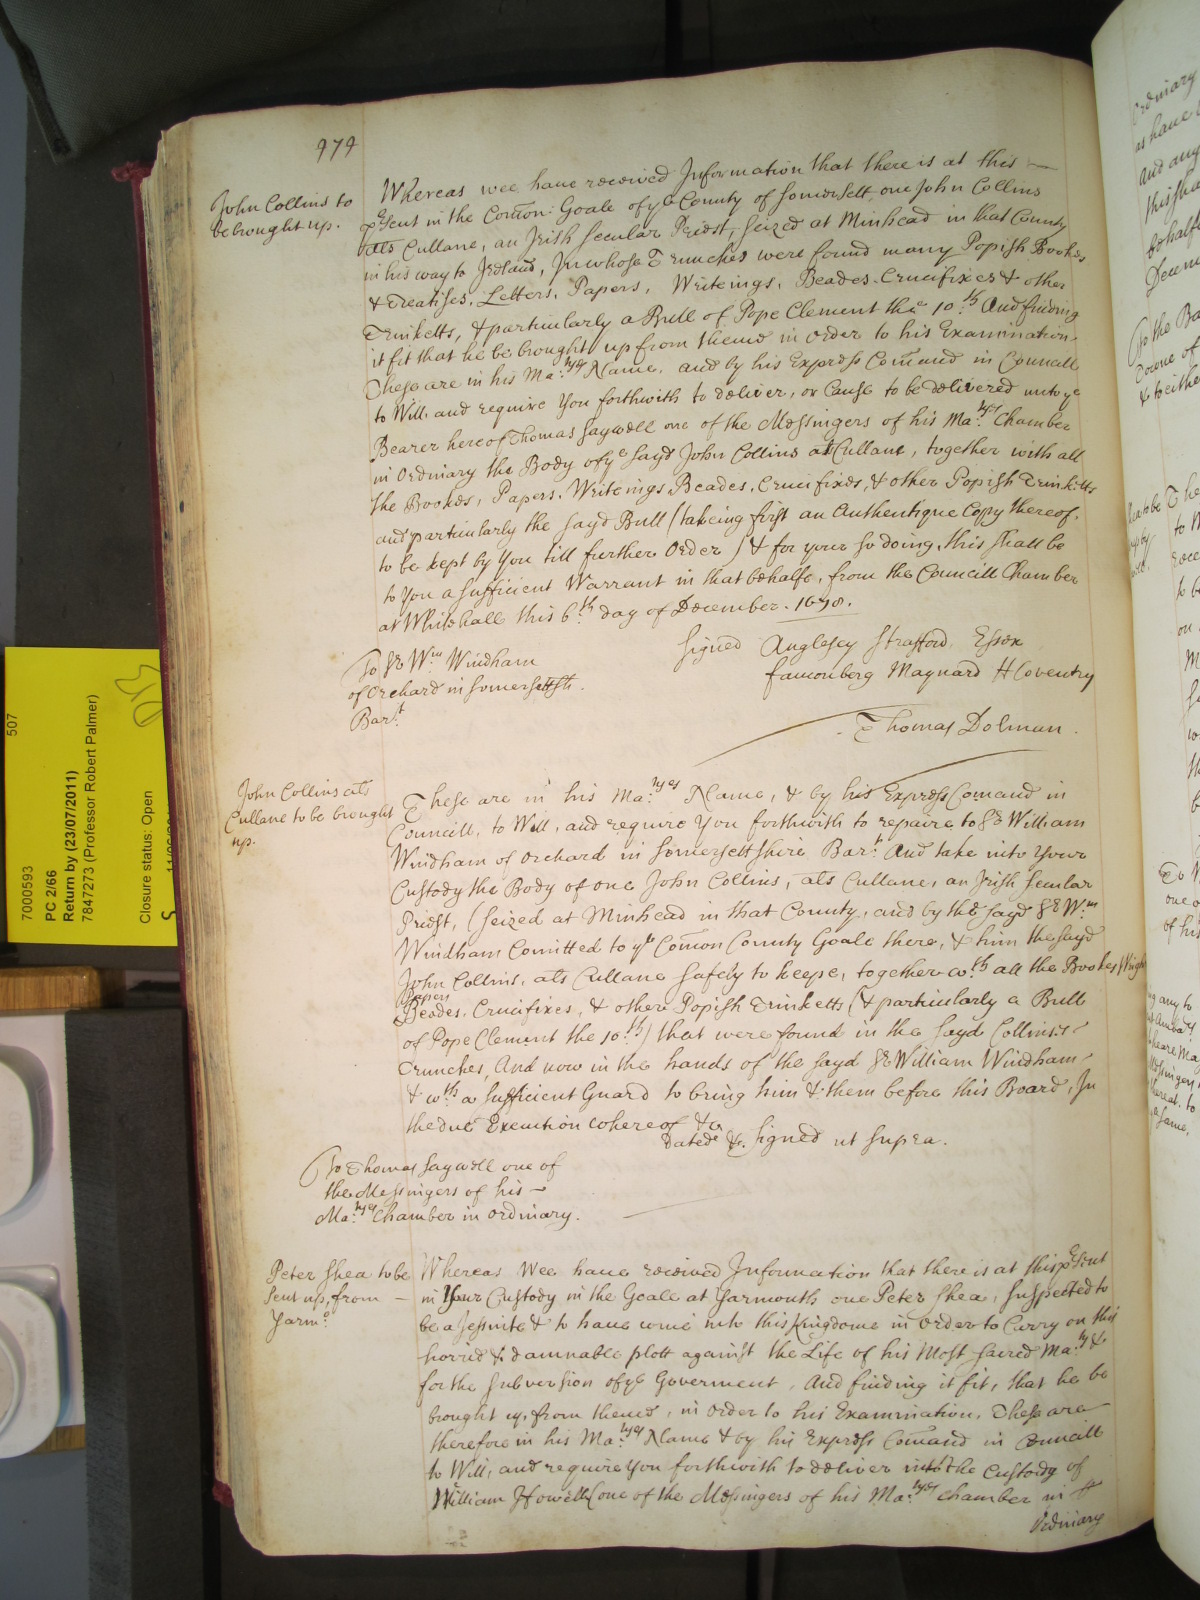 979
John Collins to
be brought up.
Whereas wee have received Information that there is at this
pSent in the Com̄on Goale of ye County of Somersett, one John Collins
als Cullane, an Irish Secular Preist, Seized at Minhead in that County
in his way to Ireland, In whose Trunches were found many Popish Bookes
& Treatises, Letters, Papers, Writeings, Beades, Crucifixes & other
Trinketts, & particularly a Bull of Pope Clement the 10th. And finding
it fit that he be brought up from thence in Order to his Examination,
These are in his Ma:tyes Name, and by his Express Com̄and in Councill
to Will, and require You forthwith to deliver, or Cause to be delivered unto ye
Bearer hereof Thomas Saywell one of the Messingers of his Ma:tyes Chamber
in Ordinary the Body of ye Sayd John Collins als Cullane, together with all
the Bookes, Papers, Writeings, Beades, Crucifixes, & other Popish Trinketts
and particularly the Sayd Bull (takeing first an Authentique Copy thereof,
to be kept by You till further Order) & for your so doing, this shall be
to You a Sufficient Warrant in that behalfe, from the Councill Chamber
at Whitehall this 6th day of December. 1678.
Signed Anglesey Strafford Essex
Fauconberg Maynard H Coventry
To Sr Wm Windham
of Orchard in Somersettsh.
Bart.
Thomas Dolman.
John Collins als
Cullane to be brought
up.
These are in his Ma:tyes Name, & by his Express Com̄and in
Councill, to Will, and require You forthwith to repaire to Sr William
Windham of Orchard in Somersettshire Bart. And take into Your
Custody the Body of one John Collins, als Cullane, an Irish Secular
Preist, (Seized at Minhead in that County, and by the Sayd Sr Wm
Windham Com̄itted to ye Com̄on County Goale there, & him the Sayd
John Collins, als Cullane Safely to keepe, together wth all the Bookes,
Papers
Beades, Crucifixes, & other Popish Trinketts (& particularly a Bull
of Pope Clement the 10th) that were found in the Sayd Collins's
Trunches, And now in the hands of the Sayd Sr William Windham
& wth a Sufficient Guard to bring him & them before this Board, In
the due Execution whereof &c.
Dated &c. Signed ut Supra.
To Thomas Saywell one of
the Messingers of his
Ma:tyes Chamber in Ordinary.
Peter Shea to be
Sent up, from
Yarm:o
Whereas Wee have received Information that there is at this pSent
in Your Custody in the Goale at Yarmouth one Peter Shea, Suspected to
be a Jesuite & to have come into this Kingdome in Order to Carry on this
horrid & damnable plott against the Life of his Most Sacred Ma:ty &
for the Subversion of ye Goverment, And finding it fit, that he be
brought up, from thence, in Order to his Examination, These are
therefore in his Ma:tyes Name & by his Express Com̄and in Councill
to Will, and require You forthwith to deliver into the Custody of
William Howell (one of the Messingers of his Ma:tyes Chamber in
Ordinary
507
7000593
PC 2/66
Return by (23/07/2011)
7847273 (Professor Robert Palmer)
Closure status: Open